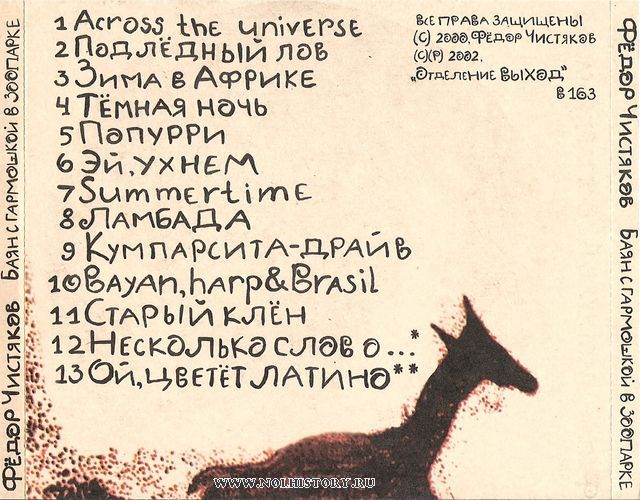 1 Across the universe
2 Подлёдный лов
3 Зима в Африке
4 Тёмная ночь
5 Попурри
6 Эй, ухнем
7 Summertime
8 Ламбада
9 Кумпарсита-драйв
10 Bayan, harp & Brasil
11 Старый клён
12 Несколько слов о ...*
13 Ой, цветёт латино**
Все права защищены
(С) 2000, Фёдор Чистяков
(С)(Р) 2002.
„Отделение Выход"
В 163
Фёдор Чистяков Баян с гармошкой в зоопарке
Фёдор Чистяков Баян с гармошкой в зоопарке
www.nolhistory.ru